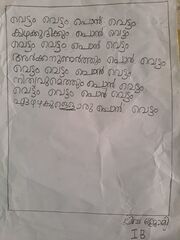 വെട്ടം വെട്ടം പൊൻ വെട്ടം
കിഴക്കുദിക്കും പൊൻ വെട്ടം
വെട്ടം വെട്ടം പൊൻ വെട്ടം
അർക്കനുണർത്തും പൊൻ വെട്ടം
വെട്ടം വെട്ടം പൊൻ വെട്ടം
നിത്യവുമെത്തും പൊൻ വെട്ടം
വെട്ടം വെട്ടം പൊൻ വെട്ടം
ഏഴഴകുള്ളൊരു പൊൻ വെട്ടം
I B